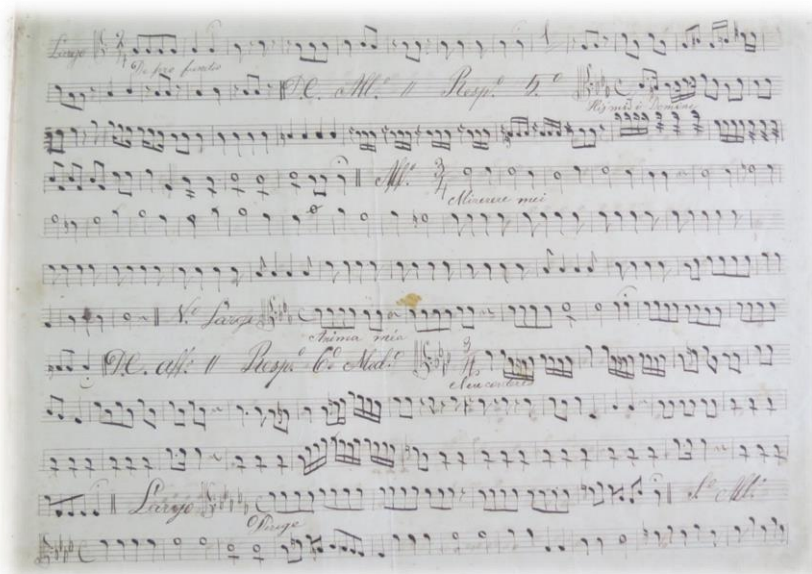 Largo
De pro fundis
D.C. All.º || Resp.º 5.º
Hei mihi Domine
All.º
Miserere mei
V.º Largo
Anima mea
D.C. all.º || Resp.º 6.º Mod.º
Ne recorderis
Largo
Dirige